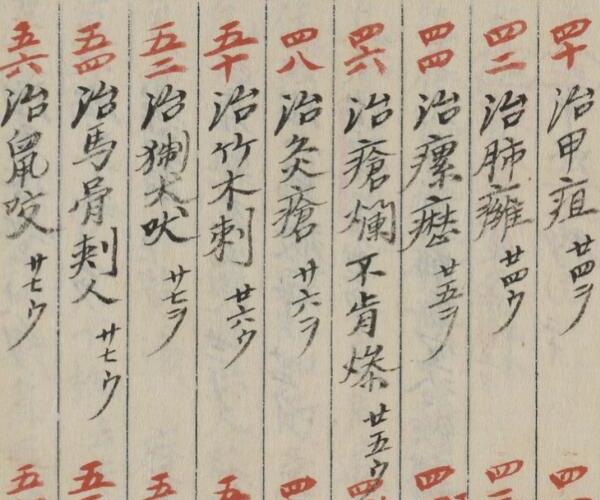 四十 治甲疽 廿四ヲ
四二 治肺癰 廿四ウ
四四 治瘰癧 廿五ヲ
四六 治瘡爛不肯燥 廿五ウ
四八 治灸瘡 廿六ヲ
五十 治竹木刺 廿六ウ
五二 治猘犬吠 廿七ヲ
五四 治馬骨刺人 廿七ウ
五六 治鼠咬 廿七ウ